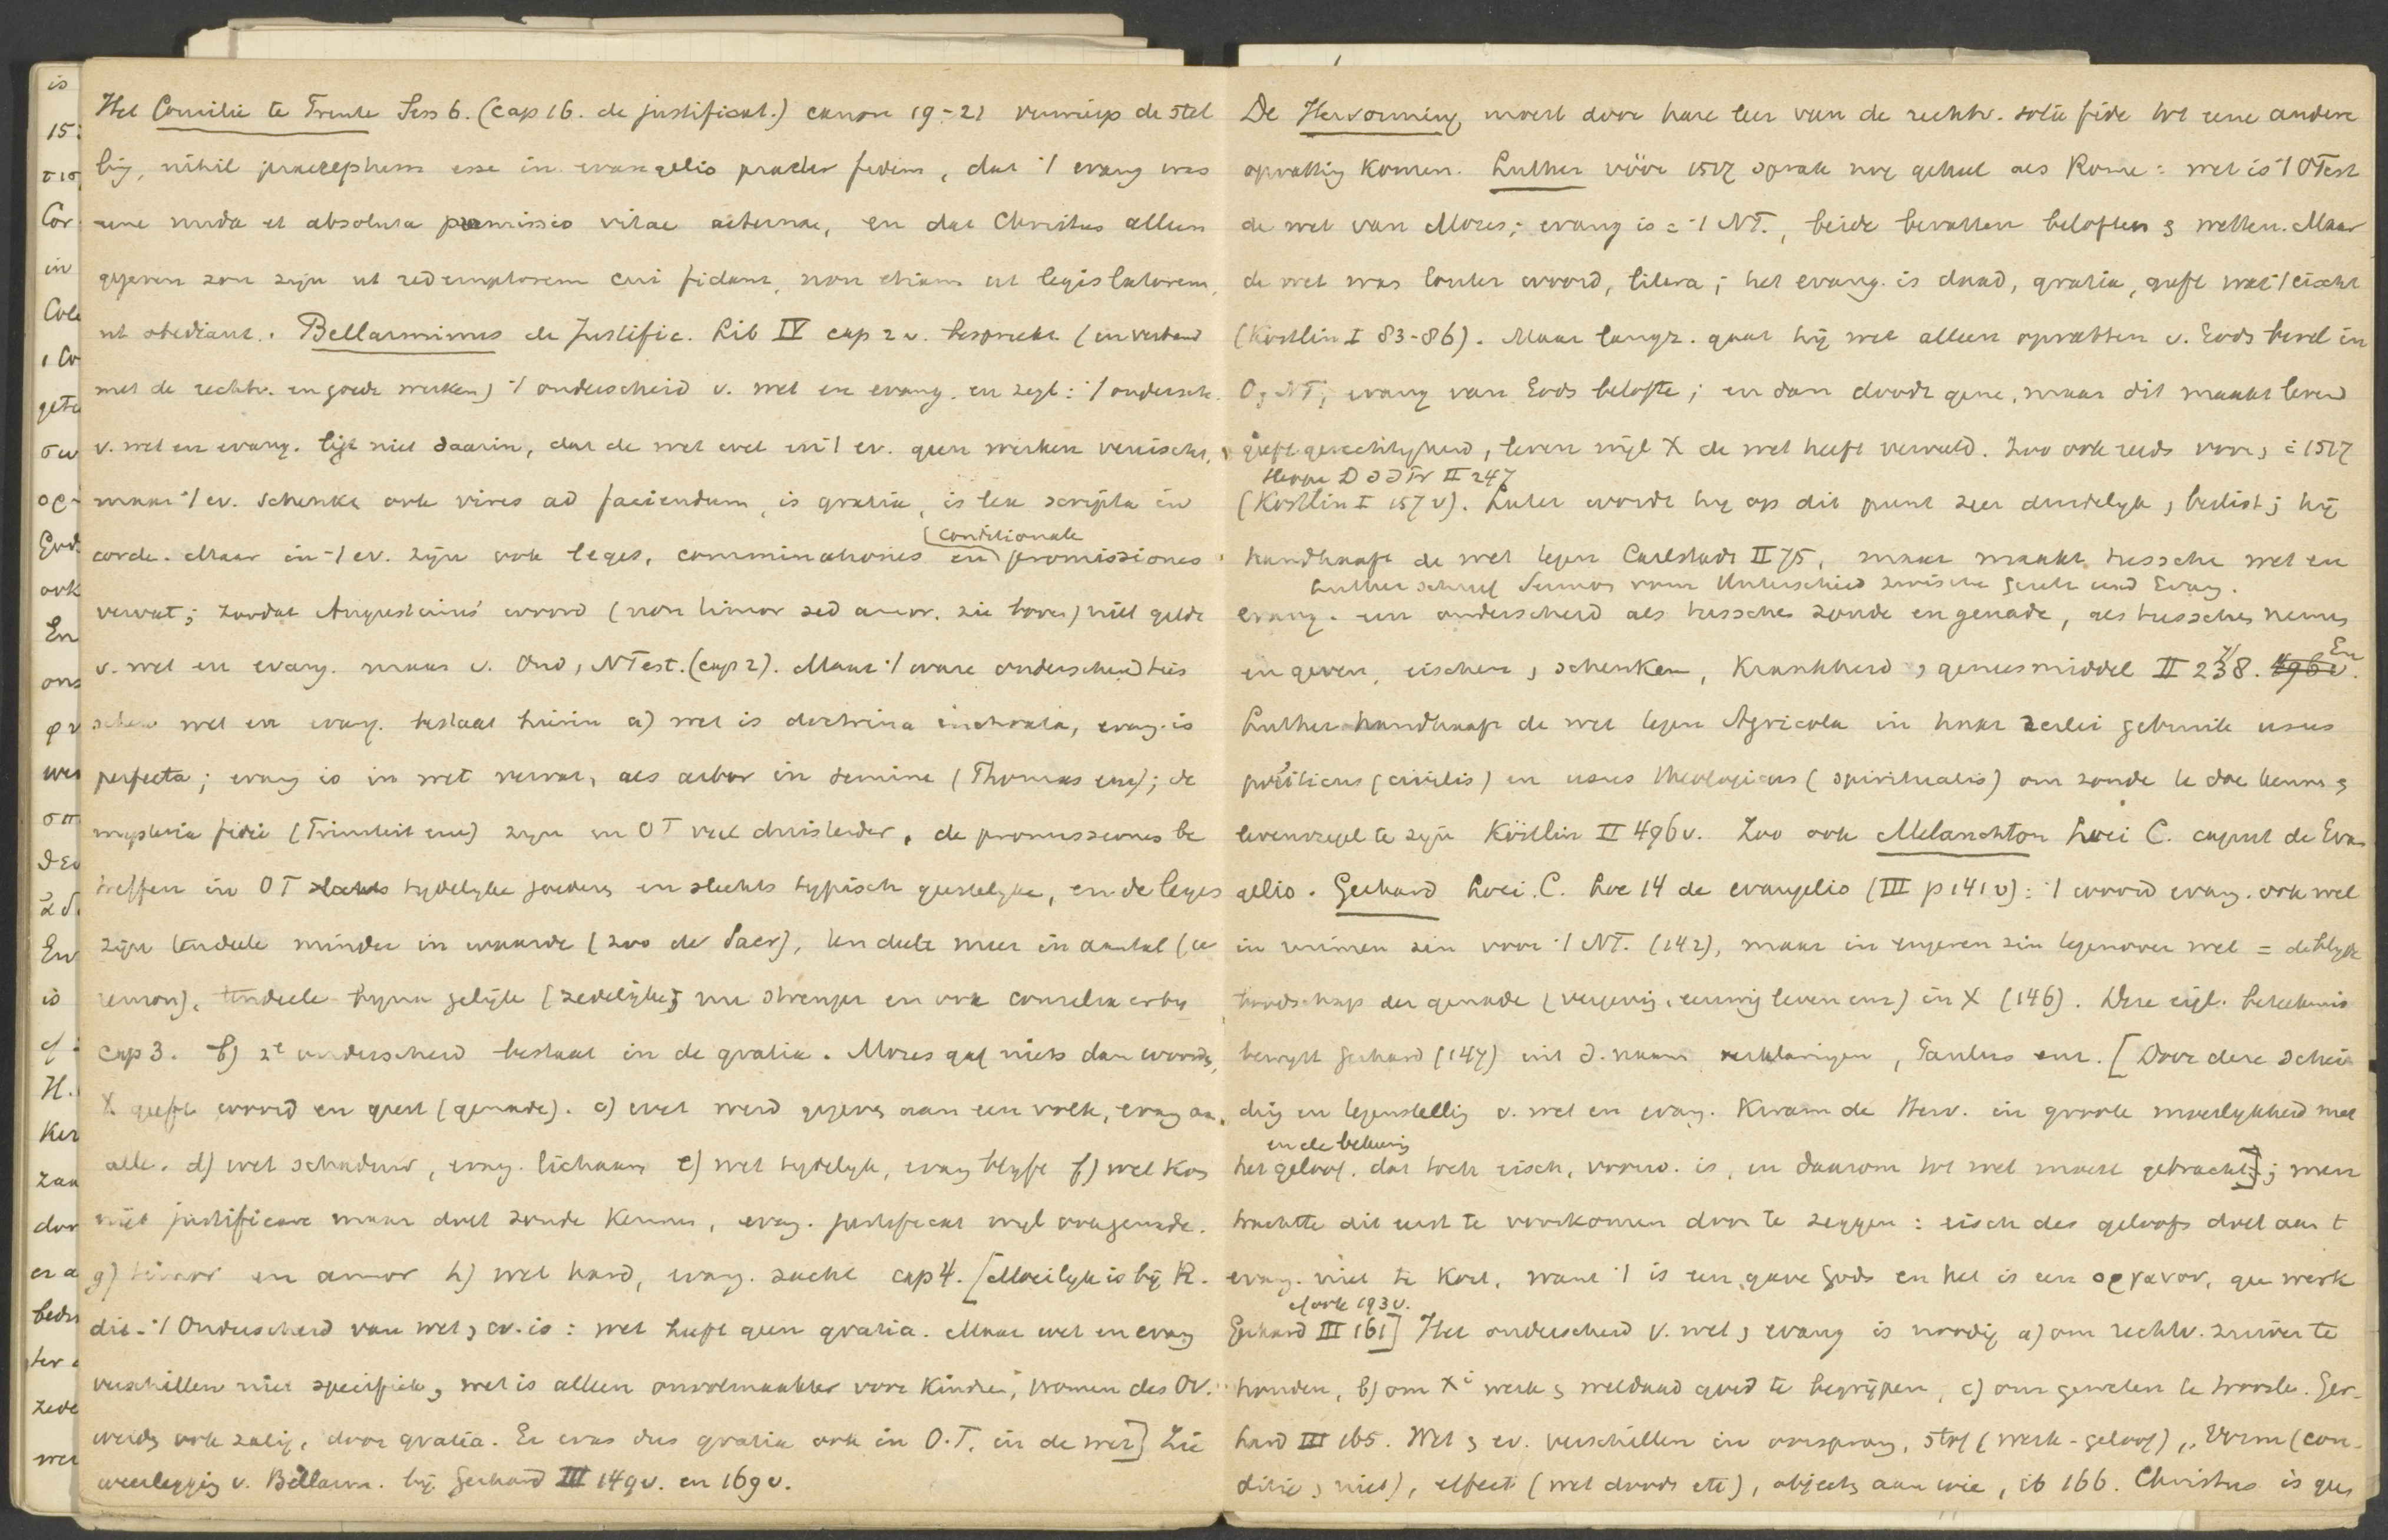 Het Concilie te Trente Sess 6. (cap 16. de justificat.) canon 19-21 verwierp de stel
ling, nihil praeceptum esse in evangelio praeter fidem, dat 't evang was
eene nuda et absoluta promissio vitae aeternae, en dat Christus alleen
gegeven zou zijn ut redemptorem cui fidant, non etiam ut legislatorem,
ut obediant. Bellarminus de Justific. Lib IV cap 2 v. bespreekt (in verband
met de rechtv. en goede werken) 't onderscheid v. wet en evang. en zegt: 't ondersch.
v. wet en evang. ligt niet daarin, dat de wet wel en 't ev. geen werken vereischt,
maar 't ev. schenkt ook vires ad faciendum, is gratia, is lex scripta in
conditionale
corde. Maar in 't ev. zijn ook leges, comminationes en promissiones
vervat; zoodat Augustinus' woord (non timor sed amor. zie boven) niet geldt
v. wet en evang. maar v. Oud, NTest. (cap 2). Maar 't ware onderscheid tus
schen wet en evang. bestaat hierin a) wet is doctrina inchoata, evang. is
perfecta; evang is in wet vervat, als arbor in semine (Thomas enz); de
mysteria fidei (Triniteit enz) zijn in OT veel duisterder, de promissiones be
treffen in OT slechts tydelyke goederen en slechts typisch geestelyke, en de leges
zijn tendeele minder in waarde (zoo de Sacr), ten deele meer in aantal (ce
remon), tendeele bijna gelijk (zedelijke) nu strenger en ook consilia erby
cap 3. b) 2e onderscheid bestaat in de gratia. Mozes gaf niets dan woorden,
X geeft woord en geest (genade). c) wet werd gegeven aan een volk, evang aan
alle. d) wet schaduw, evang. lichaam e) wet tydelyk, evang blyft f) wet kon
niet justificare maar doet zonde kennen, evang. justificat wyl ook genade.
g) timor en amor h) wet hard, evang. zacht cap 4. [Moeilyk is bij R.
dit. 't Onderscheid van wet, ev. is: wet heeft geen gratia. Maar wet en evang
verschillen niet specifiek, wet is alleen onvolmaakter voor kinderen, vromen des OV.
werden ook zalig, door gratia. Er was dus gratia ook in O.T. in de wet] Zie
weerlegging v. Bellarm. bij Gerhard III 149v. en 169v.
De Hervorming moest door hare leer van de rechtv. sola fide tot eene andere
opvatting komen. Luther vóór 1517 sprak nog geheel als Rome: wet is 't OTest
de wet van Mozes; evang is = 't NT., beide bevatten beloften & wetten. Maar
de wet was louter woord, litera; het evang. is daad, gratia, geeft wat 't eischt
(Köstlin I 83-86). Maar langz. gaat hij wet alleen opvatten v. Gods bevel in
O & NT; evang van Gods belofte; en dan doodt gene, maar dit maakt levend
geeft gerechtigheid, leven wijl X de wet heeft vervuld. Zoo ook reeds voor 1517
II 247
(Köstlin I 157v). Later wordt hij op dit punt zeer duidelyk, beslist; hij
handhaaft de wet tegen Carlstadt II 75, maar maakt tusschen wet en
Luther schreef Sermon vom Unterschied zwischen Gesetz und Evang.
evang. een onderscheid als tusschen zonde en genade, als tusschen nemen
en geven, eischen, schenken, krankheid, geneesmiddel II 238. 496v. En
Luther handhaaft de wet tegen Agricola in haar 2erlei gebruik usus
politicus (civilis) en usus theologicus (spiritualis) om zonde te doen kennen &
levensregel te zijn Köstlin II 496v. Zoo ook Melanchton Loci C. caput de Evan
gelio. Gerhard Loci.C. Loc 14 de evangelio (III p 141v): 't woord evang. ook wel
in ruimen zin voor 't NT. (142), maar in engeren zin tegenover wet = de blyde
boodschap der genade (vergeving, eeuwig leven enz) in X (146). Deze eigl. beteekenis
bewyst Gerhard (147) uit d. naam verklaringen, Paulus enz. [Door deze schei
ding en tegenstelling v. wet en evang. kwam de Herv. in groote moeilykheid met
en de bekeering
het geloof. dat toch eisch, voorw. is, en daarom tot wet moest gebracht]; men
trachtte dit eerst te voorkomen door te zeggen: eisch des geloofs doet aan t
evang. niet te kort, want 't is een gave Gods en het is een οργανον, geen werk
cf ook 193v.
Gerhard III 161] Het onderscheid v. wet & evang is noodig a) om rechtv. zuiver te
houden, b) om Xi werk & weldaad goed te begrijpen, c) om gewetens te troosten. Ger-
hard III 165. Wet & ev. verschillen in oorsprong, stof (werk-geloof), vorm (con-
ditie, niet), effect (wet doodt etc), objects aan wie, ib 166. Christus is geen